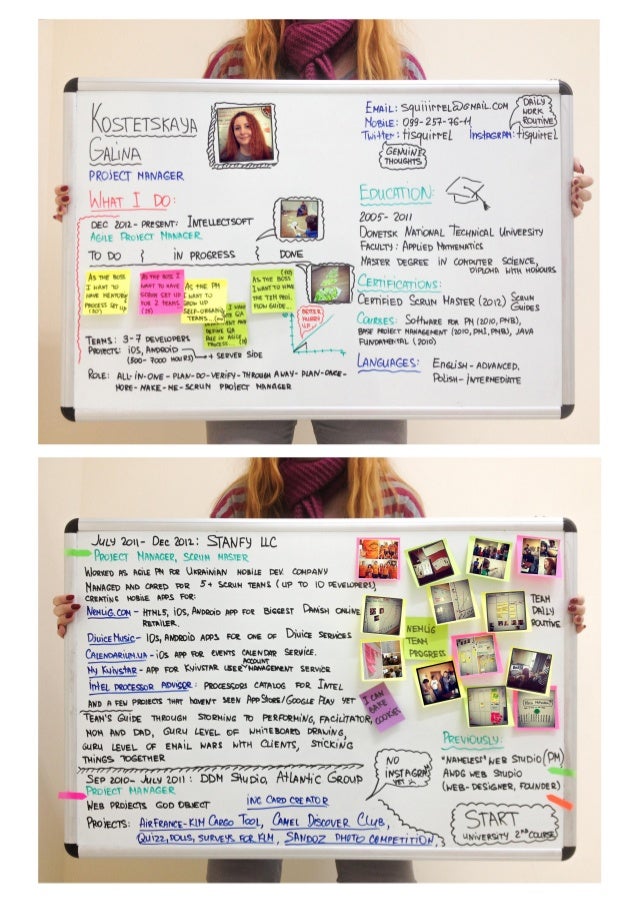 KOSTETSKAYA
GALINA
PROJECT MANAGER
EMAIL: squiiirrel@GMAIL.COM
MOBILE: 099-257-76-11
TWITTER: tisquirrel INSTAGRAM: tisquirrel
DAILY
WORK
ROUTINE
GENUINE
THOUGHTS
WHAT I DO:
DEC 2012 - PRESENT: INTELLECTSOFT
AGILE PROJECT MANAGER
TO DO } IN PROGRESS { DONE
AS THE BOSS
I WANT TO
HAVE MENTORY
PROCESS SET UP
AS THE BOSS I
WANT TO HAVE
SCRUM SET UP
FOR 2 TEAMS
AS THE PM
I WANT TO
GROW UP
SELF-ORGANIZ.
TEAMS...
I WANT
QA
AND
DEFINE QA
ROLE IN AGILE
PROCESS...
AS THE BOSS
I WANT TO HAVE
THE TIM PROJ.
FLOW GUIDE...
BETTER
HURRY
UP
TEAMS: 3-7 DEVELOPERS
PROJECTS: iOS, ANDROID
(500-7000 HOURS) → SERVER SIDE
ROLE: ALL-IN-ONE-PLAN-DO-VERIFY-THROUGH AWAY-PLAN-ONCE-
MORE-MAKE-ME-SCRUM PROJECT MANAGER
EDUCATION:
2005-2011
DONETSK NATIONAL TECHNICAL UNIVERSITY
FACULTY: APPLIED MATHEMATICS
MASTER DEGREE IN COMPUTER SCIENCE,
DIPLOMA WITH HONOURS
CERTIFICATIONS:
CERTIFIED SCRUM MASTER (2012) SCRUM
GUIDES
COURSES: SOFTWARE FOR PM (2010, PMB),
BASE PROJECT MANAGEMENT (2010, PMI, PMB), JAVA
FUNDAMENTAL (2010)
LANGUAGES: ENGLISH - ADVANCED,
POLISH - INTERMEDIATE
JULY 2011 - DEC 2012: STANFY LLC
PROJECT MANAGER, SCRUM MASTER
WORKED AS AGILE PM FOR UKRAINIAN MOBILE DEV. COMPANY
MANAGED AND CARED FOR 5+ SCRUM TEAMS (UP TO 10 DEVELOPERS)
CREATING MOBILE APPS FOR:
NEMLIG.COM - HTML5, iOS, ANDROID APP FOR BIGGEST DANISH ONLINE
RETAILER.
DJUICE MUSIC - iOS, ANDROID APPS FOR ONE OF DJUICE SERVICES
CALENDARIUM.UA - iOS APP FOR EVENTS CALENDAR SERVICE.
MY KYIVSTAR - APP FOR KYIVSTAR USER ACCOUNT MANAGEMENT SERVICE
INTEL PROCESSOR ADVISOR: PROCESSORS CATALOG FOR INTEL
AND A FEW PROJECTS THAT HAVEN'T SEEN APPSTORE/GOOGLE PLAY YET
TEAM'S GUIDE THROUGH STORMING TO PERFORMING, FACILITATOR,
MOM AND DAD, GURU LEVEL OF WHITEBOARD DRAWING,
GURU LEVEL OF EMAIL WARS WITH CLIENTS, STICKING
THINGS TOGETHER
NEMLIG
TEAM
PROGRESS
I CAN
BAKE
COOKIES
TEAM
DAILY
ROUTINE
SEP 2010 - JULY 2011: DDM STUDIO, ATLANTIC GROUP
PROJECT MANAGER
WEB PROJECTS GOD OBJECT ING CARD CREATOR
PROJECTS: AIRFRANCE-KLM CARGO TOOL, CAMEL DISCOVER CLUB,
QUIZZ, POLLS, SURVEYS FOR KLM, SANDOZ PHOTO COMPETITION,
NO
INSTAGRAM
YET
PREVIOUSLY:
"NAMELESS" WEB STUDIO (PM)
AWDG WEB STUDIO
(WEB-DESIGNER, FOUNDER)
START
UNIVERSITY 2ND COURSE